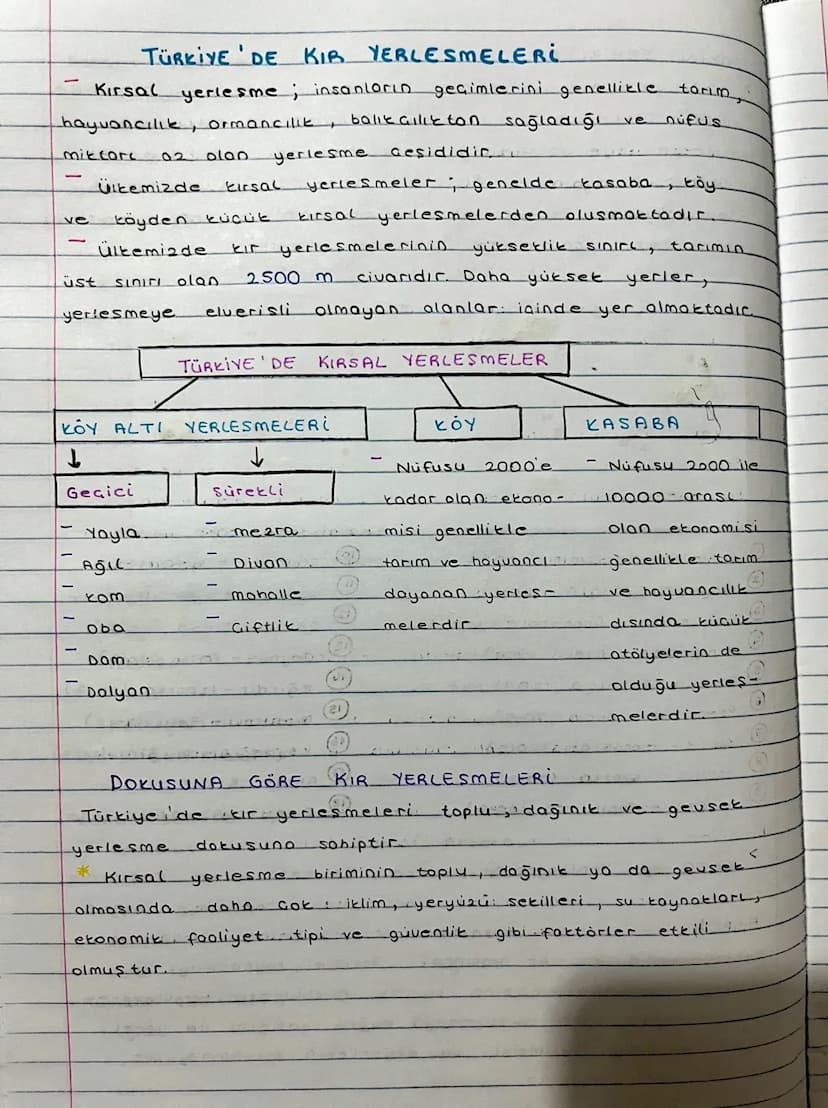 TÜRKİYE'DE KIR YERLESMELERİ
- Kırsal yerlesme ; insanların geçimlerini genellikle tarım,
hayvancılık, ormancılık, balıkçılıktan sağladığı ve nüfus
miktarı az olan yerlesme çesididir.
- Ülkemizde kırsal yerlesmeler ; genelde kasaba, köy
ve köyden küçük kırsal yerlesmelerden olusmaktadır.
- Ülkemizde kır yerlesmelerinin yükseklik sınırı, tarımın
üst sınırı olan 2500 m civarıdır. Daha yüksek yerler,
yerlesmeye elverisli olmayan alanlar içinde yer almaktadır.
TÜRKİYE'DE KIRSAL YERLESMELER
KÖY ALTI YERLESMELERİ
↓ Geçici
- Yayla
- Ağıl
- kom
- oba
- Dam
- Dalyan
↓ Sürekli
- mezra
- Divan
- mahalle
- Çiftlik
KÖY
- Nüfusu 2000'e
kadar olan ekono-
misi genellikle
tarım ve hayvancı
dayanan yerles-
melerdir
KASABA
- Nüfusu 2000 ile
10000 arası
olan ekonomisi
genellikle tarım
ve hayvancılık
dısında küçük
atölyelerin de
olduğu yerleş-
melerdir.
DOKUSUNA GÖRE KIR YERLESMELERİ
Türkiye'de kır yerleşmeleri toplu, dağınık ve gevsek
yerlesme dokusuna sahiptir.
* Kırsal yerlesme biriminin toplu, dağınık ya da gevsek
olmasında daha çok : iklim, yeryüzü sekilleri, su kaynakları,
ekonomik faaliyet tipi ve güvenlik gibi faktörler etkili
olmuştur.